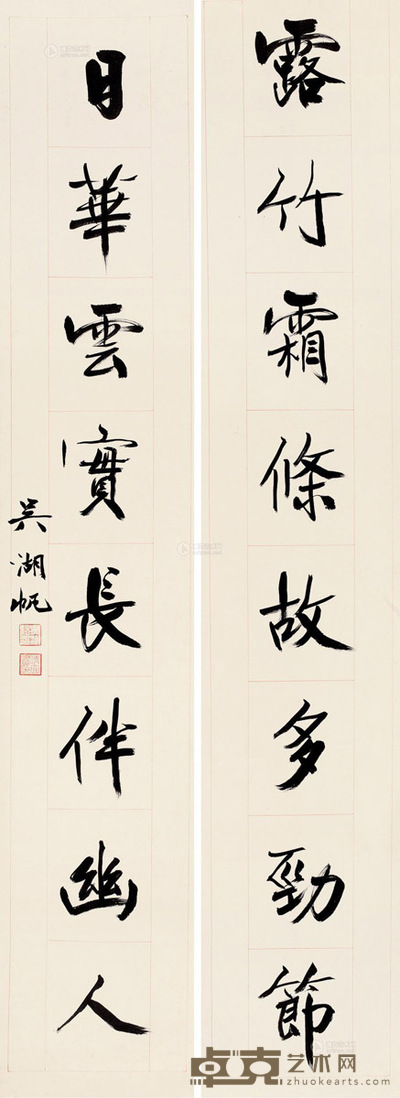 露竹霜條故多勁節
日華雲實長伴幽人
吳湖帆
卓克艺术网
zhuokearts.com